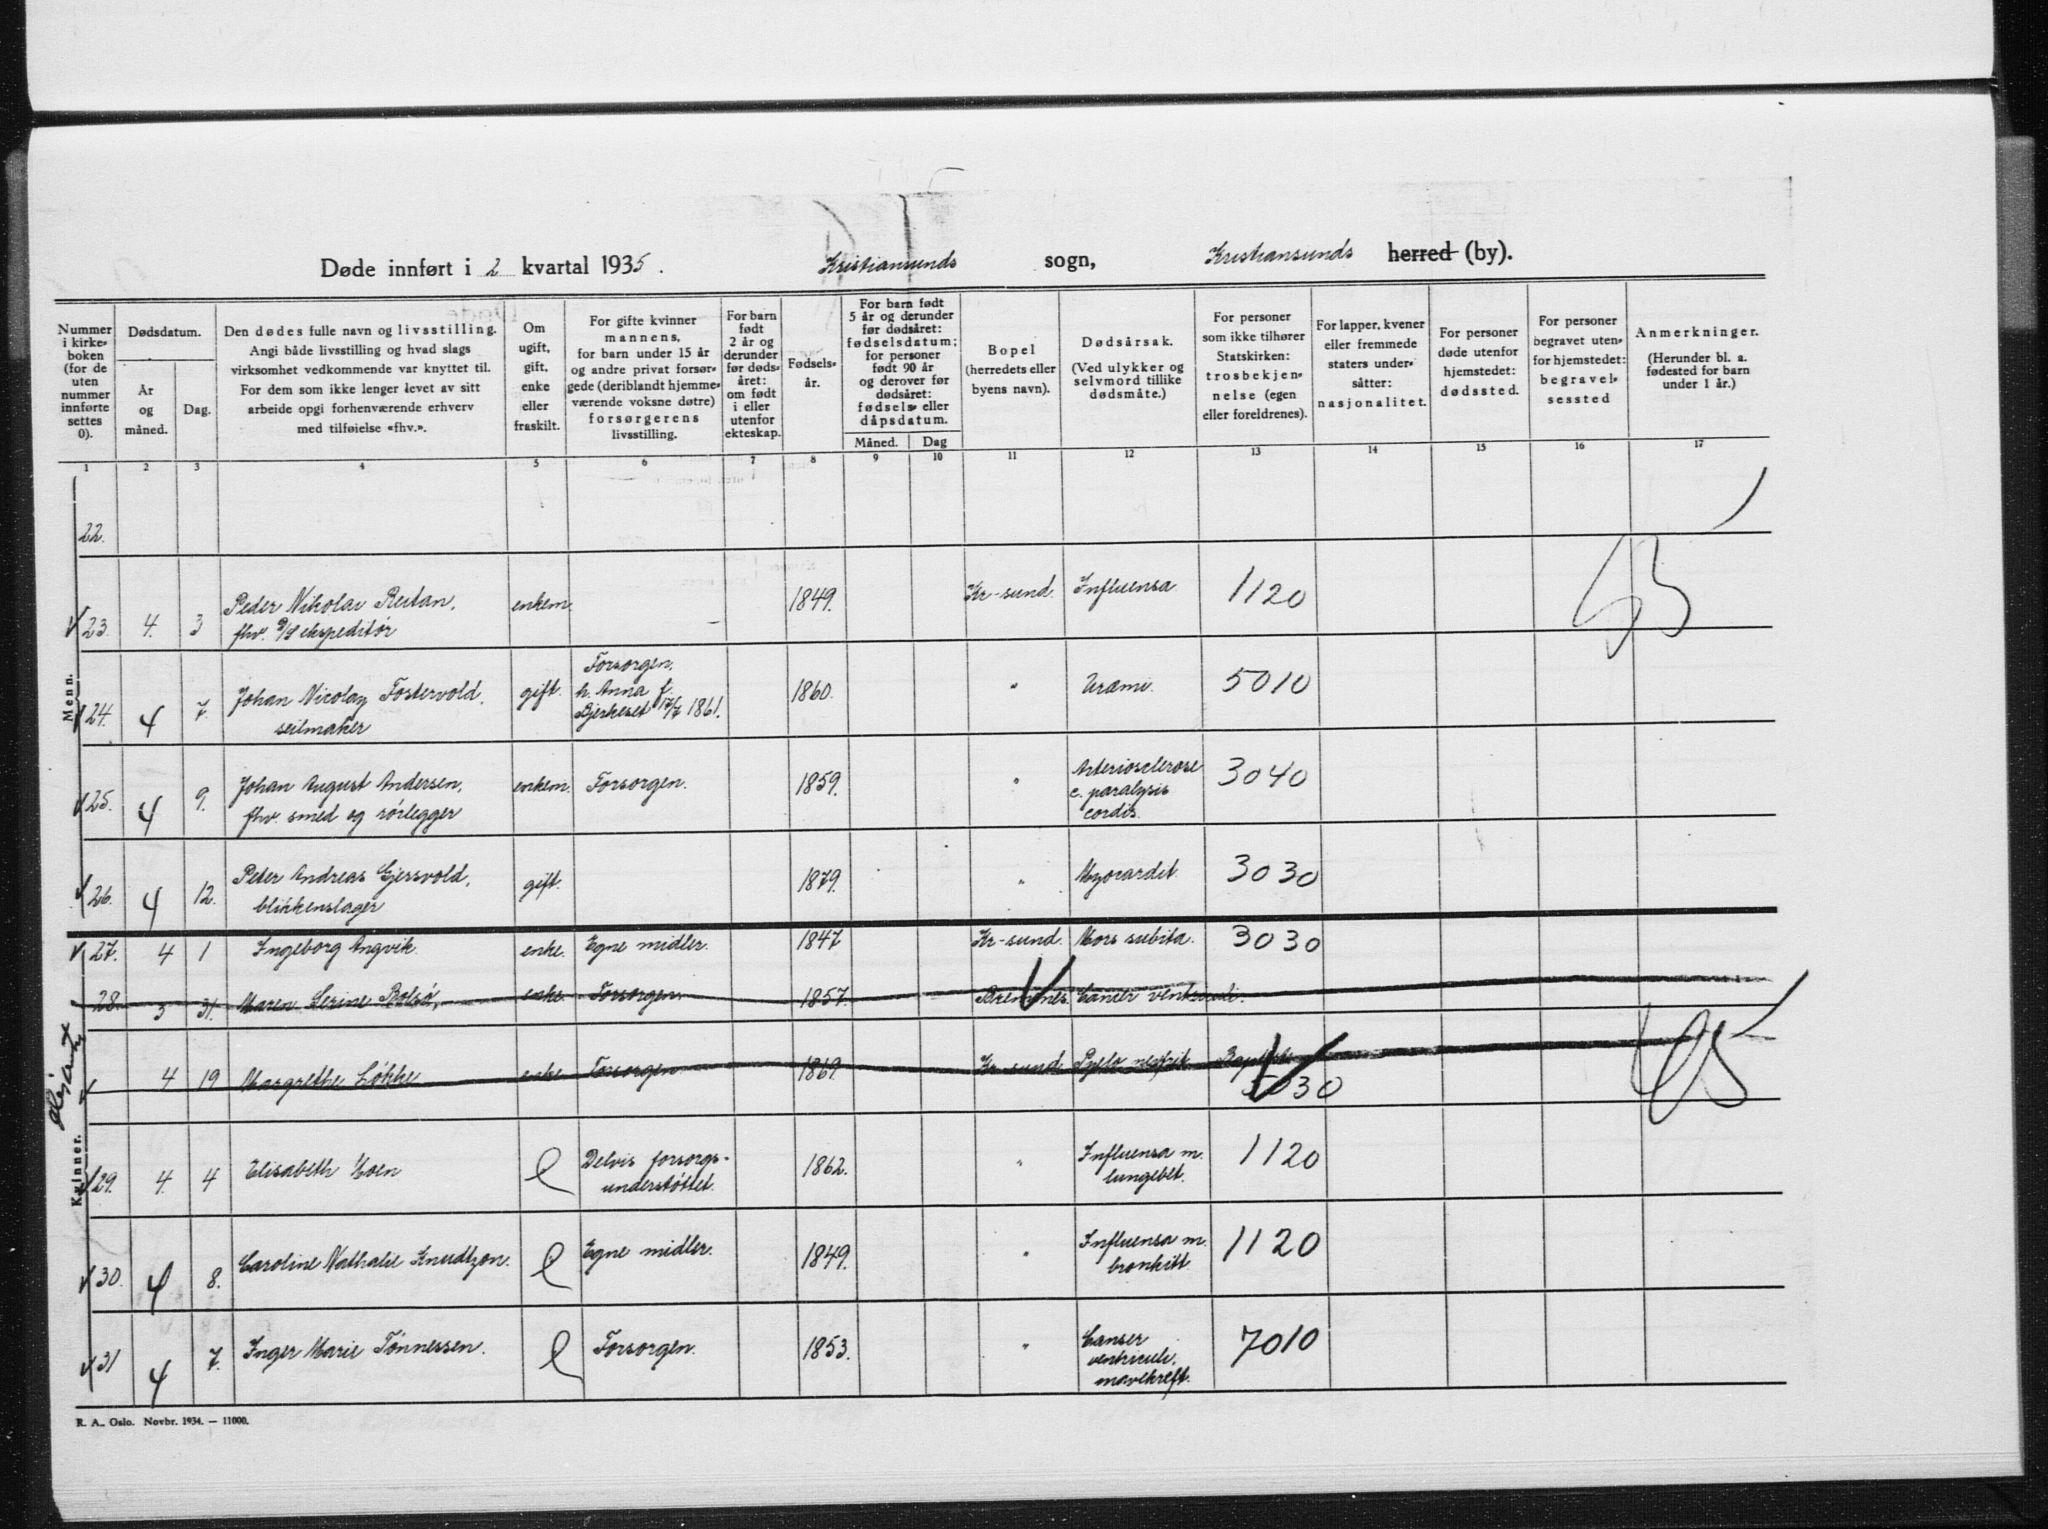 Døde innført i 2 kvartal 1935. Kristiansunds sogn, Kristiansunds herred (by).
Nummer
i kirke-
boken
(for de
uten
nummer
innførte
settes
0).
Dødsdatum.
År
og
måned.
Dag.
Den dødes fulle navn og livsstilling.
Angi både livsstilling og hvad slags
virksomhet vedkommende var knyttet til.
For dem som ikke lenger levet av sitt
arbeide opgi forhenværende erhverv
med tilføielse «fhv.».
Om
ugift,
gift,
enke
eller
fraskilt.
For gifte kvinner
mannens,
for barn under 15 år
og andre privat forsør-
gede (deriblandt hjemme-
værende voksne døtre)
forsørgerens
livsstilling.
For barn
født
2 år og
derunder
før døds-
året:
om født
i eller
utenfor
ekteskap.
Fødsels-
år.
For barn født
5 år og derunder
før dødsåret:
fødselsdatum;
for personer
født 90 år
og derover før
dødsåret:
fødsels- eller
dåpsdatum.
Måned. Dag
Bopel
(herredets eller
byens navn).
Dødsårsak.
(Ved ulykker og
selvmord tillike
dødsmåte.)
For personer
som ikke tilhører
Statskirken:
trosbekjen-
nelse (egen
eller foreldrenes).
For lapper, kvener
eller fremmede
staters under-
såtter:
nasjonalitet.
For personer
døde utenfor
hjemstedet:
dødssted.
For personer
begravet uten-
for hjemstedet:
begravel-
sessted
Anmerkninger.
(Herunder bl. a.
fødested for barn
under 1 år.)
1 2 3 4 5 6 7 8 9 10 11 12 13 14 15 16 17
Menn.
22.
23. 4. 3 Peder Nikolai Reitan, enkem. 1849. Kr-sund. Influensa 1120
fhv. D/S ekspeditør
24. 4 7. Johan Nicolay Fostervold, gift. Forsorgen, 1860. " Uræmi. 5010
seilmaker h. Anna f.
Bjerkeset 17/7 1861.
25. 4 9. Johan August Andersen, enkem. Forsorgen. 1859. " Arteriosclerose 3040
fhv. smed og rørlegger c. paralysis
cordis.
26. 4 12. Peter Andreas Gjersvold, gift. 1879. " Myocardit. 3030
blikkenslager
Kvinner.
27. 4 1 Ingeborg Angvik. enke. Egne midler. 1847 Kr-sund. Mors subita. 3030
28. 3 31. Maren Serine Bolsø, enke. Forsorgen. 1857. Bremsnes. Cancer ventriculi.
4 19 Margrethe Løkke enke Forsorgen 1869. Kr-sund Pyelo nefrit
29. 4. 4 Elisabeth Hoen e Delvis forsorgs- 1862. " Influensa m. 1120
understøttet. lungebet.
30. 4 8. Caroline Nathalie Knudtzon. e Egne midler. 1849. " Influensa m. 1120
bronkitt.
31 4 7. Inger Marie Tønnessen. e Forsorgen. 1853. " Canser 7010
ventriculi,
mavekreft.
R. A., Oslo. Novbr. 1934. — 11000.